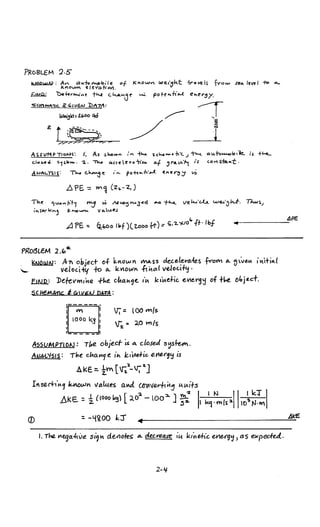 PROBLEM 2.5
KNOWN: An automobile of known weight travels from sea level to a
known elevation.
FIND: Determine the change in potential energy.
SCHEMATIC & GIVEN DATA:
Weight = 2600 lbf
z
ASSUMPTIONS: 1. As shown in the schematic, the automobile is the
closed system. 2. The acceleration of gravity is constant.
ANALYSIS: The change in potential energy is
ΔPE = mg (z₂-z₁)
The quantity mg is recognized as the vehicle weight. Thus,
inserting known values
ΔPE = (2600 lbf)(2000 ft) = 5.2×10⁶ ft·lbf ΔPE
PROBLEM 2.6*
KNOWN: An object of known mass decelerates from a given initial
velocity to a known final velocity.
FIND: Determine the change in kinetic energy of the object.
SCHEMATIC & GIVEN DATA:
m V₁ = 100 m/s
1000 kg V₂ = 20 m/s
ASSUMPTION: The object is a closed system.
ANALYSIS: The change in kinetic energy is
ΔKE = ½m[V₂²-V₁²]
Inserting known values and converting units
ΔKE = ½ (1000 kg) [20² - 100²] m²/s² |1 N / 1 kg·m/s²| |1 kJ / 10³ N·m|
① = -4800 kJ ΔKE
1. The negative sign denotes a decrease in kinetic energy, as expected.
2-4